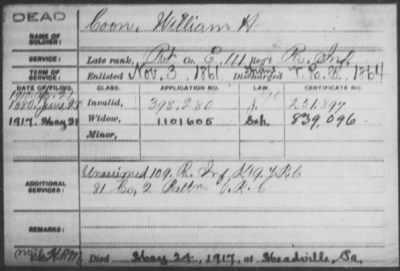 DEAD
NAME OF SOLDIER: Coon, William H
SERVICE: Late rank, Pvt Co. E, 111 Reg't Pa. Inf.
TERM OF SERVICE: Enlisted Nov. 3, 1861 Discharged 1864
DATE OF FILING. CLASS. APPLICATION NO. LAW. CERTIFICATE NO.
1880, June 22 Invalid, 398,280 231,897
1917, May 31 Widow, 1101606 839,096
Minor,
ADDITIONAL SERVICES: Unassigned 109, Pa. Inf
81 Co, 2 Battn V. R. C
REMARKS:
Died May 24, 1917, at Meadville, Pa.